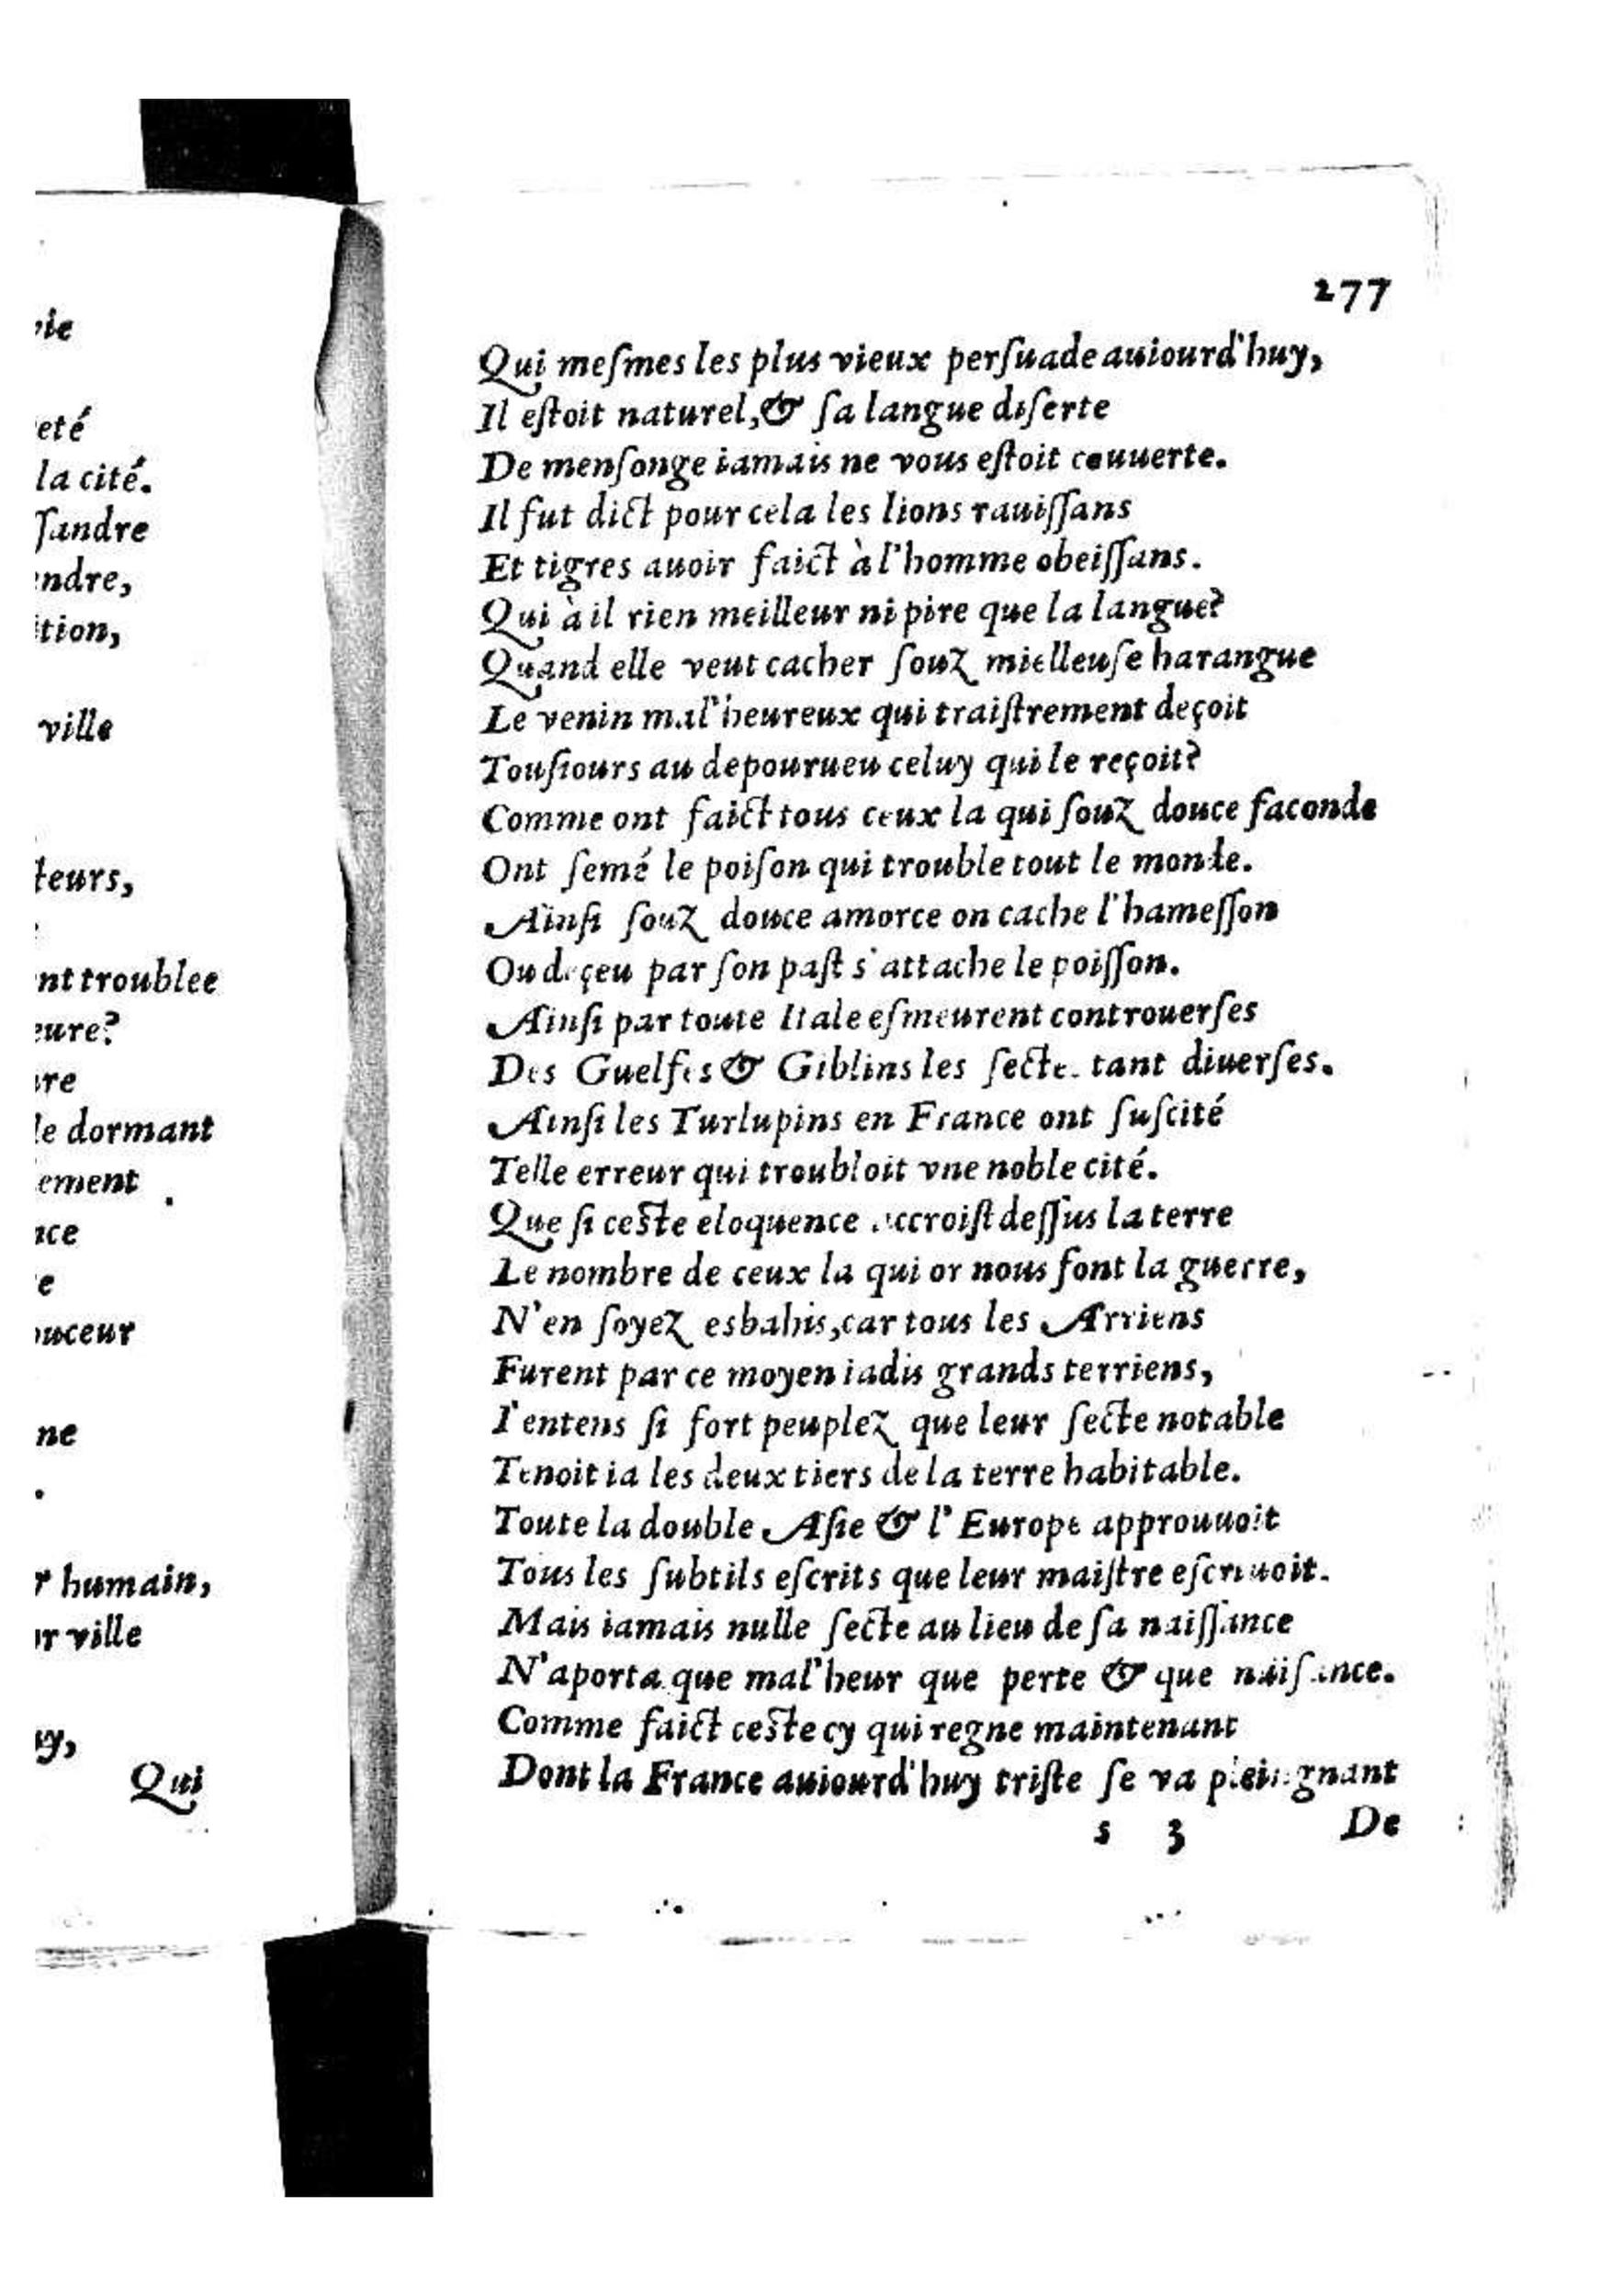 vie
eté
la cité.
ſandre
endre,
ition,
ville
teurs,
nt troublee
eure?
dormant
ement
nce
ouceur
ne
humain,
ville
Qui
277
Qui meſmes les plus vieux perſuade auiourd'huy,
Il eſtoit naturel, & ſa langue diſerte
De menſonge iamais ne vous eſtoit couuerte.
Il fut dict pour cela les lions rauiſſans
Et tigres auoir faict à l'homme obeiſſans.
Qui à il rien meilleur ni pire que la langue?
Quand elle veut cacher ſouz mielleuſe harangue
Le venin mal'heureux qui traiſtrement deçoit
Touſiours au depourueu celuy qui le reçoit?
Comme ont faict tous ceux la qui ſouz douce faconde
Ont ſemé le poiſon qui trouble tout le monde.
Ainſi ſouz douce amorce on cache l'hameſſon
Ou deçeu par ſon paſt s'attache le poiſſon.
Ainſi par toute Itale eſmeurent controuerſes
Des Guelfes & Giblins les ſecte tant diuerſes.
Ainſi les Turlupins en France ont ſuſcité
Telle erreur qui troubloit vne noble cité.
Que ſi ceste eloquence accroiſt deſſus la terre
Le nombre de ceux la qui or nous font la guerre,
N'en ſoyez esbahis, car tous les Arriens
Furent par ce moyen iadis grands terriens,
I'entens ſi fort peuplez que leur ſecte notable
Tenoit ia les deux tiers de la terre habitable.
Toute la double Aſie & l'Europe approuuoit
Tous les ſubtils eſcrits que leur maiſtre eſcriuoit.
Mais iamais nulle ſecte au lieu de ſa naiſſance
N'aporta que mal'heur que perte & que
Comme faict ceste cy qui regne maintenant
Dont la France auiourd'huy triſte ſe va pleingnant
s 3 De